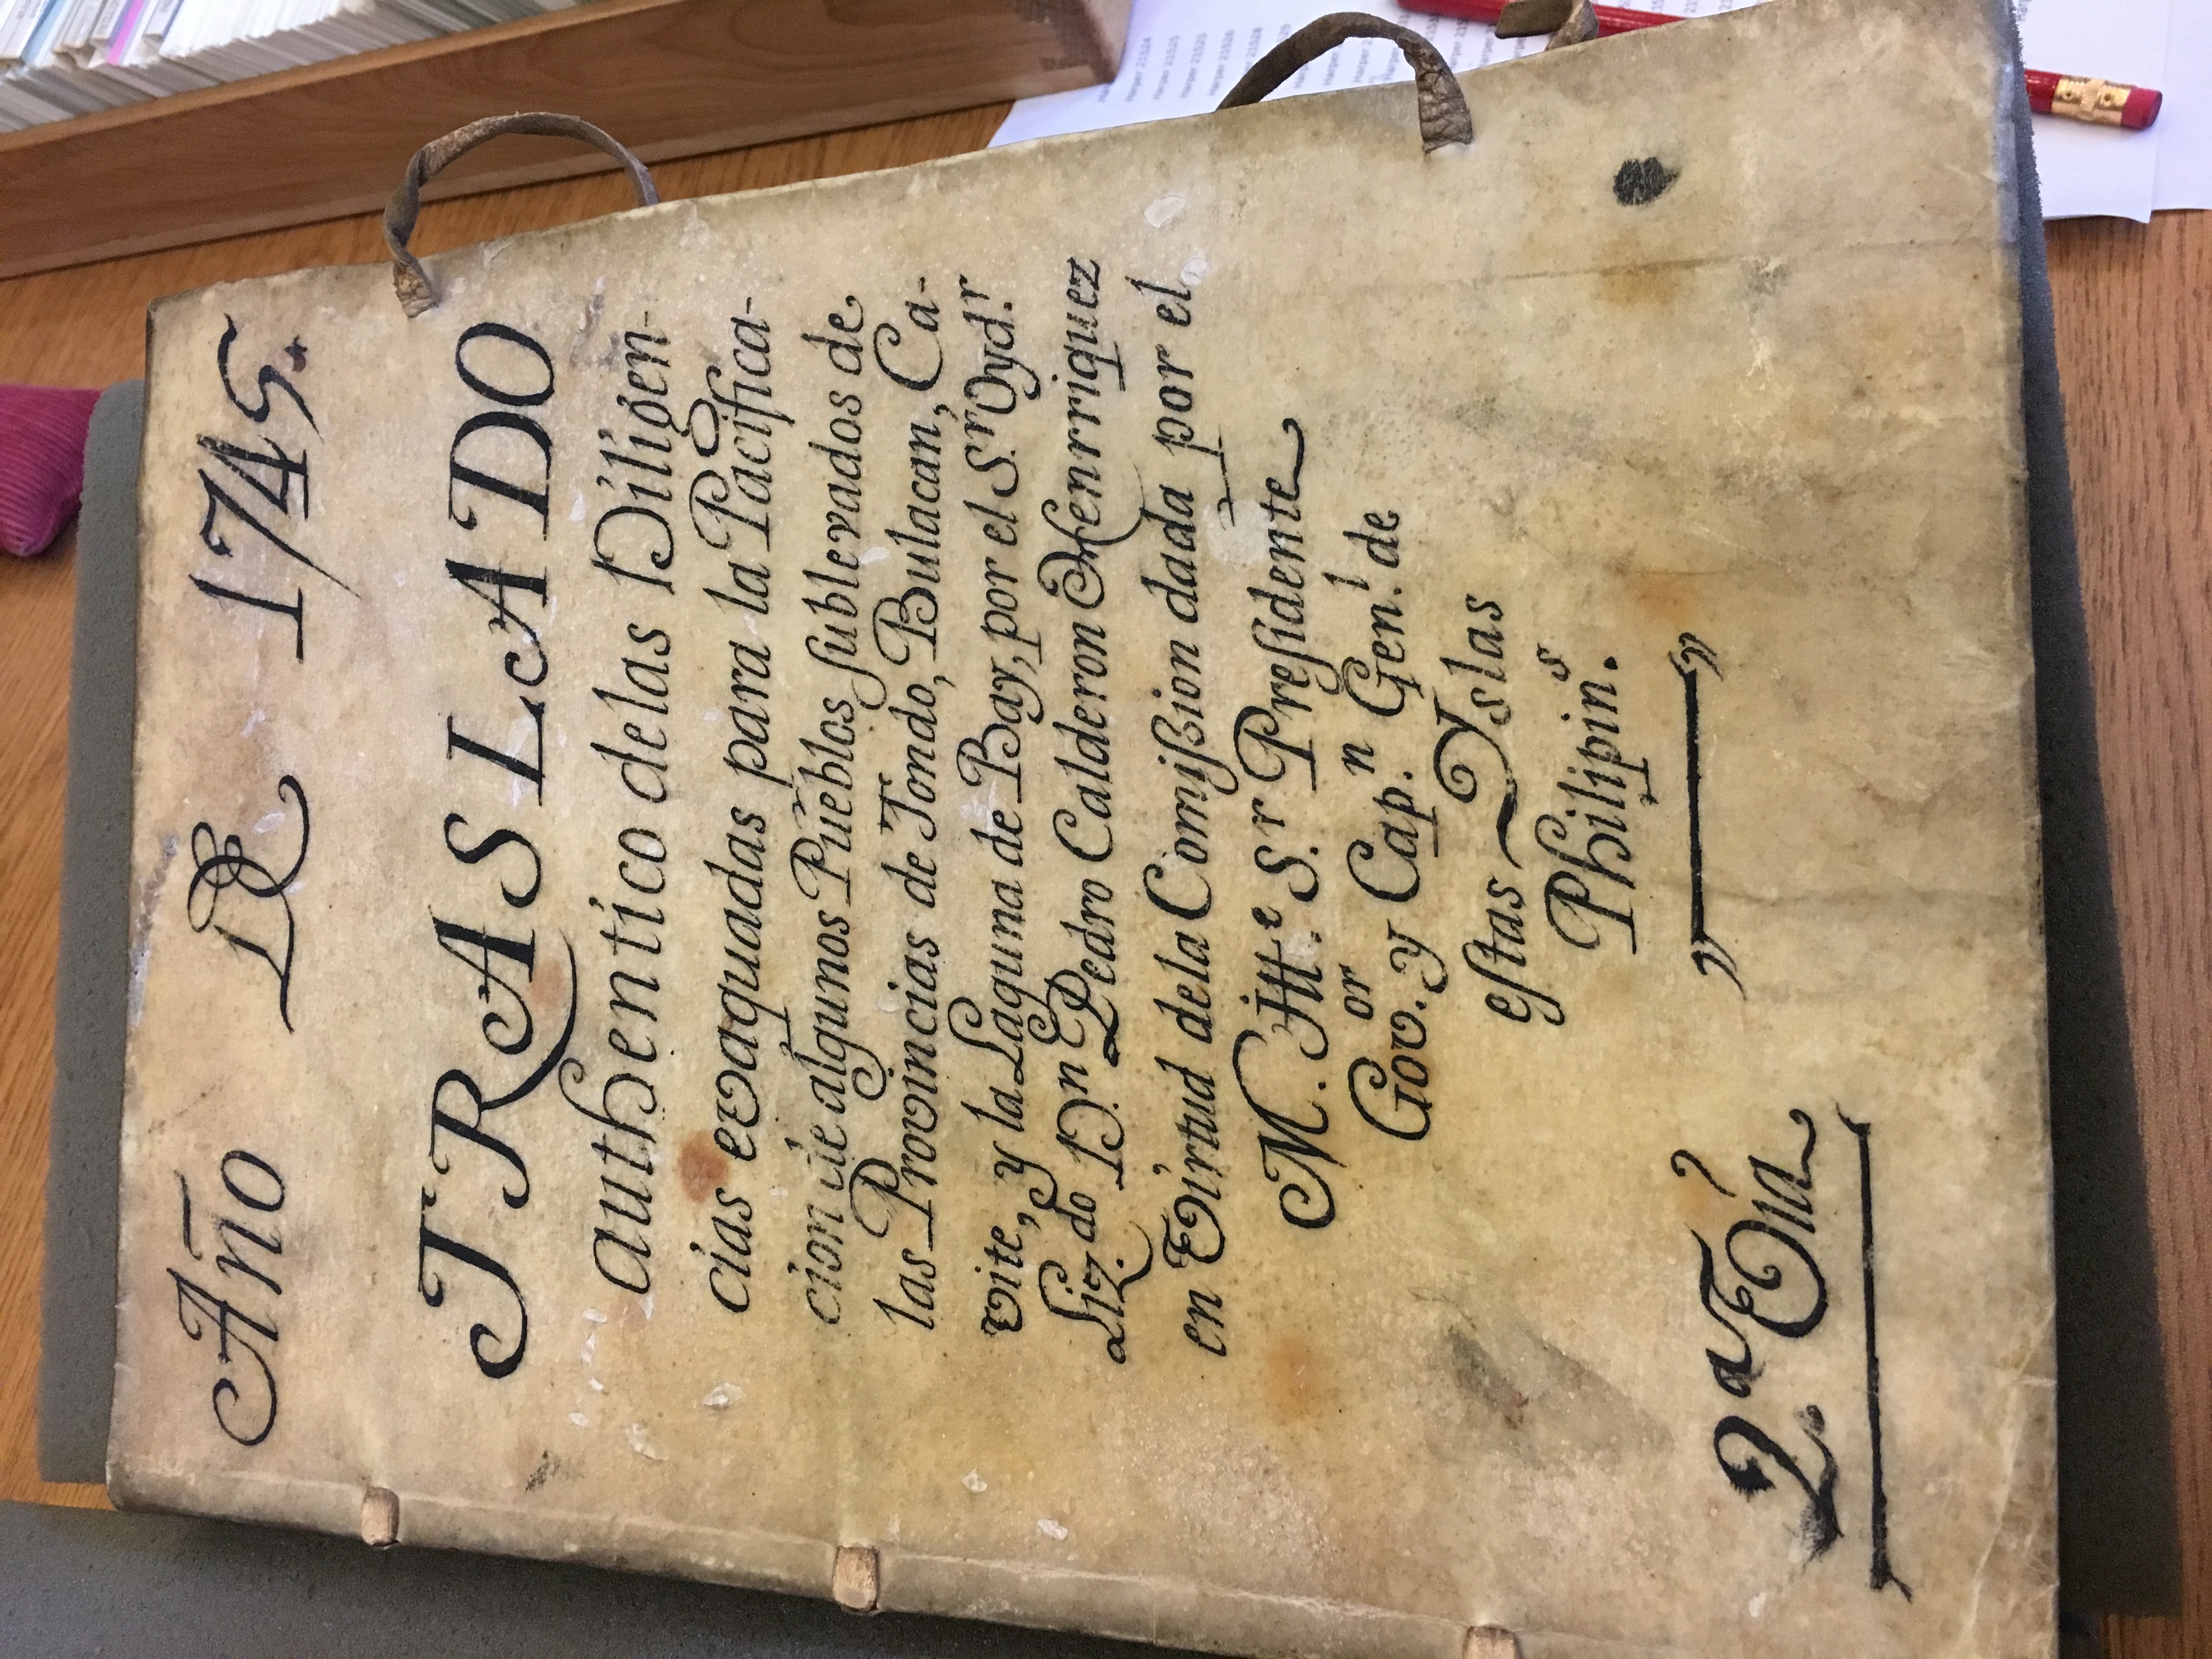 Año DE 1745.
TRASLADO
authentico delas Diligen-
cias evaquadas para la Pacifica-
cion de algunos Pueblos sublevados de
las Provincias de Tondo, Bulacan, Ca-
vite, y la Laguna de Bay, por el S.r Oyd.r
Liz.do D.n Pedro Calderon Henrriquez
en Virtud dela Comission dada por el
M. Itt.e S.r Presidente
Gov.or y Cap.n Gen.l de
estas Yslas
Philipin.s
2.a Via
Harper 21524
Harper 21525
Harper 21525
Harper 21526